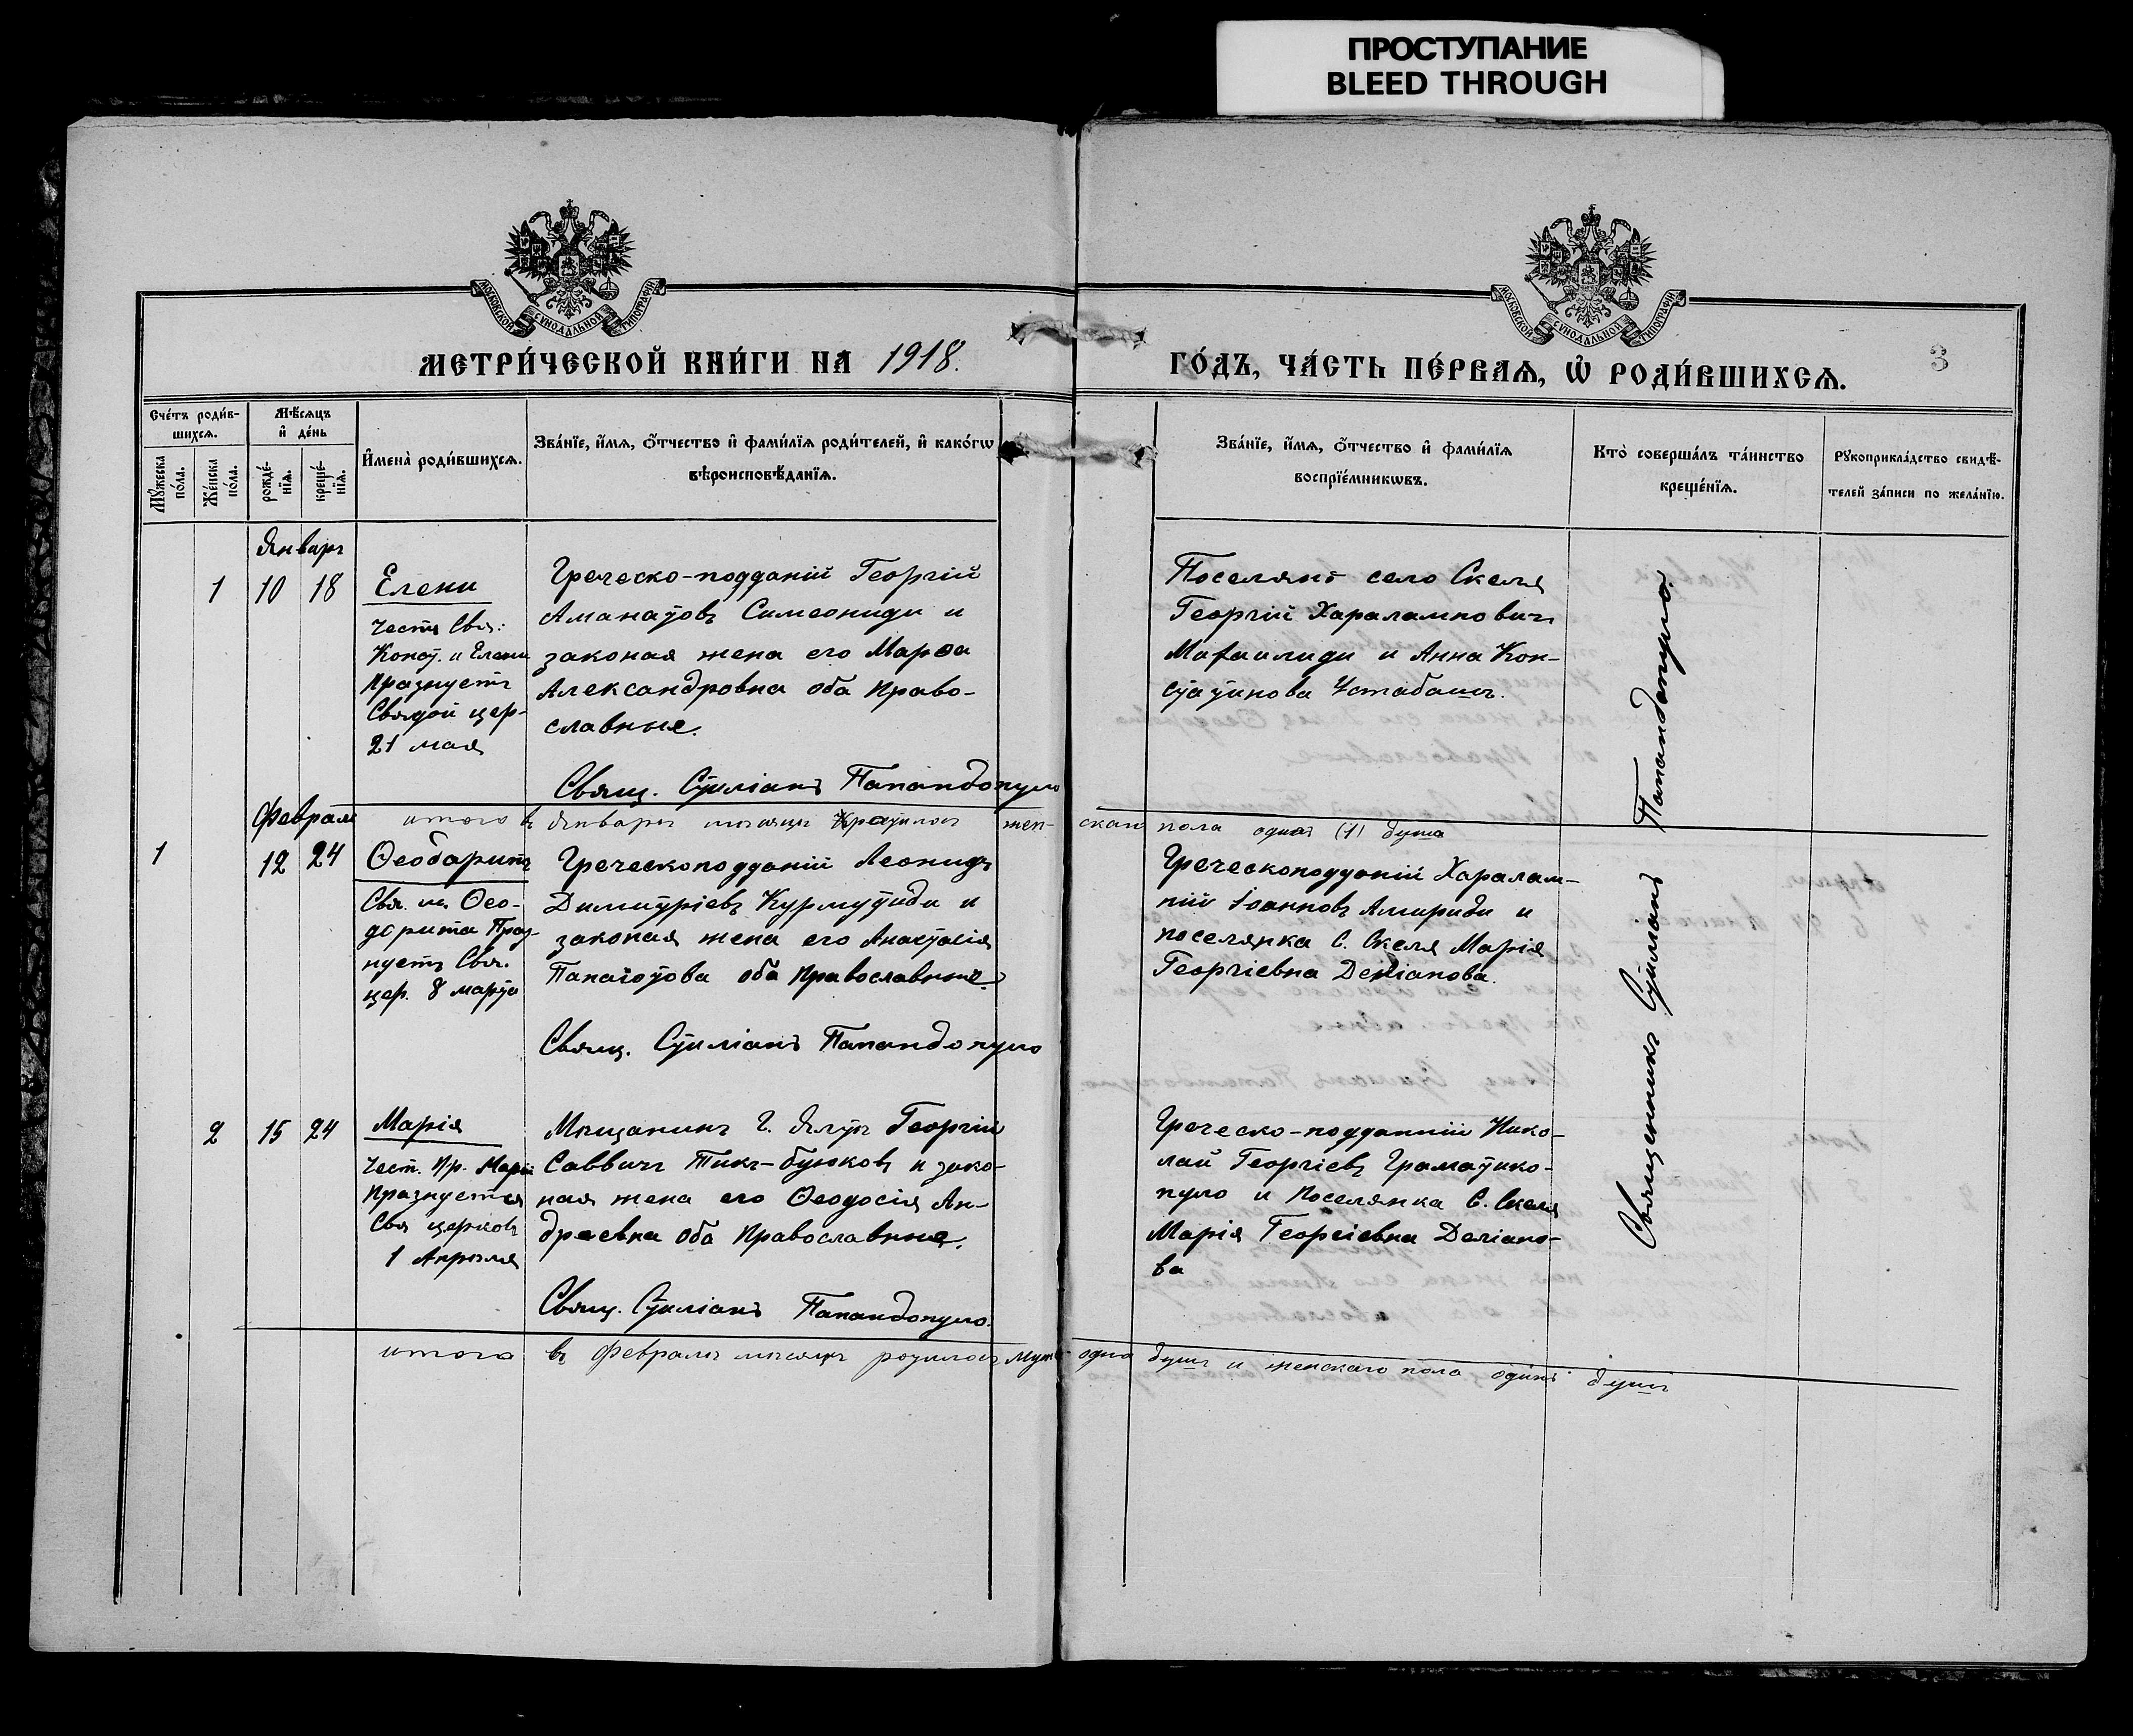 ПРОСТУПАНИЕ
BLEED THROUGH
МОСКОВСКОЙ СѴНОДАЛЬНОЙ ТИПОГРАФІИ
МОСКОВСКОЙ СѴНОДАЛЬНОЙ ТИПОГРАФІИ
МЕТРИ́ЧЕСКОЙ КНИ́ГИ НА 1918.
ГО́ДЪ, ЧА́СТЬ ПЕ́РВАѦ, Ѡ РОДИ́ВШИХСѦ.
3
Сче́тъ роди́в-
шихсѧ.
Мѣ́сѧцъ
и҆ де́нь
Мꙋ́жеска
по́ла.
Же́нска
по́ла.
рожде́-
нїѧ.
креще́-
нїѧ.
И҆мена̀ роди́вшихсѧ.
Зва́нїе, и҆́мѧ, ѻ҆́тчество и҆ фами́лїѧ роди́телей, и҆ како́гѡ
вѣроисповѣ́данїѧ.
Зва́нїе, и҆́мѧ, ѻ҆́тчество и҆ фами́лїѧ
воспрїе́мникѡвъ.
Кто̀ соверша́лъ та́инство
креще́нїѧ.
Рꙋкоприкла́дство свидѣ́-
телей за́писи по жела́нїю.
Январь
1 10 18
Елени
Честь Свя:
Конст. и Елени
Празнуетъ
Святой цер-
21 мая
Греческо-подданій Георгій
Аманатовъ Симеониди и
законая жена его Марѳа
Александровна оба Право-
славные.
Свящ. Стиліанъ Папандопуло
Поселянъ село Скеля
Георгій Харалампович
Михаилиди и Анна Кон-
стантинова Устабашъ.
итого въ Январь месяцъ женскаго пола одная (1) душа
Февраль
1 12 24
Ѳеодоритъ
Свя. м. Ѳео-
дорита Праз-
нуетъ Свя.
цер. 8 марта
Греческоподданій Леонидъ
Димитріевъ Курмутиди и
законая жена его Анастасія
Панаіотова оба Православные.
Свящ. Стиліанъ Папандопуло
Греческоподданій Харалам-
пій Іоанновъ Амириди и
поселянка С. Скеля Марія
Георгіевна Деліанова.
2 15 24
Марія
Чест. Пр. Маріи
Празнуется
Свя церковь
1 Апрѣля
Мѣщанинъ Г. Ялты Георгій
Саввичъ Тикъ-буюковъ и зако-
ная жена его Ѳеодосія Ан-
дреевна оба Православные.
Свящ. Стиліанъ Папандопуло.
Греческо-подданній Нико-
лай Георгіевъ Граматико-
пуло и Поселянка С. Скеля
Марія Георгіевна Деліано-
ва
итого въ Февраль месяцъ родилось муж одна душъ и женскаго пола одинъ душъ
Священникъ Стиліанъ Папандопуло.